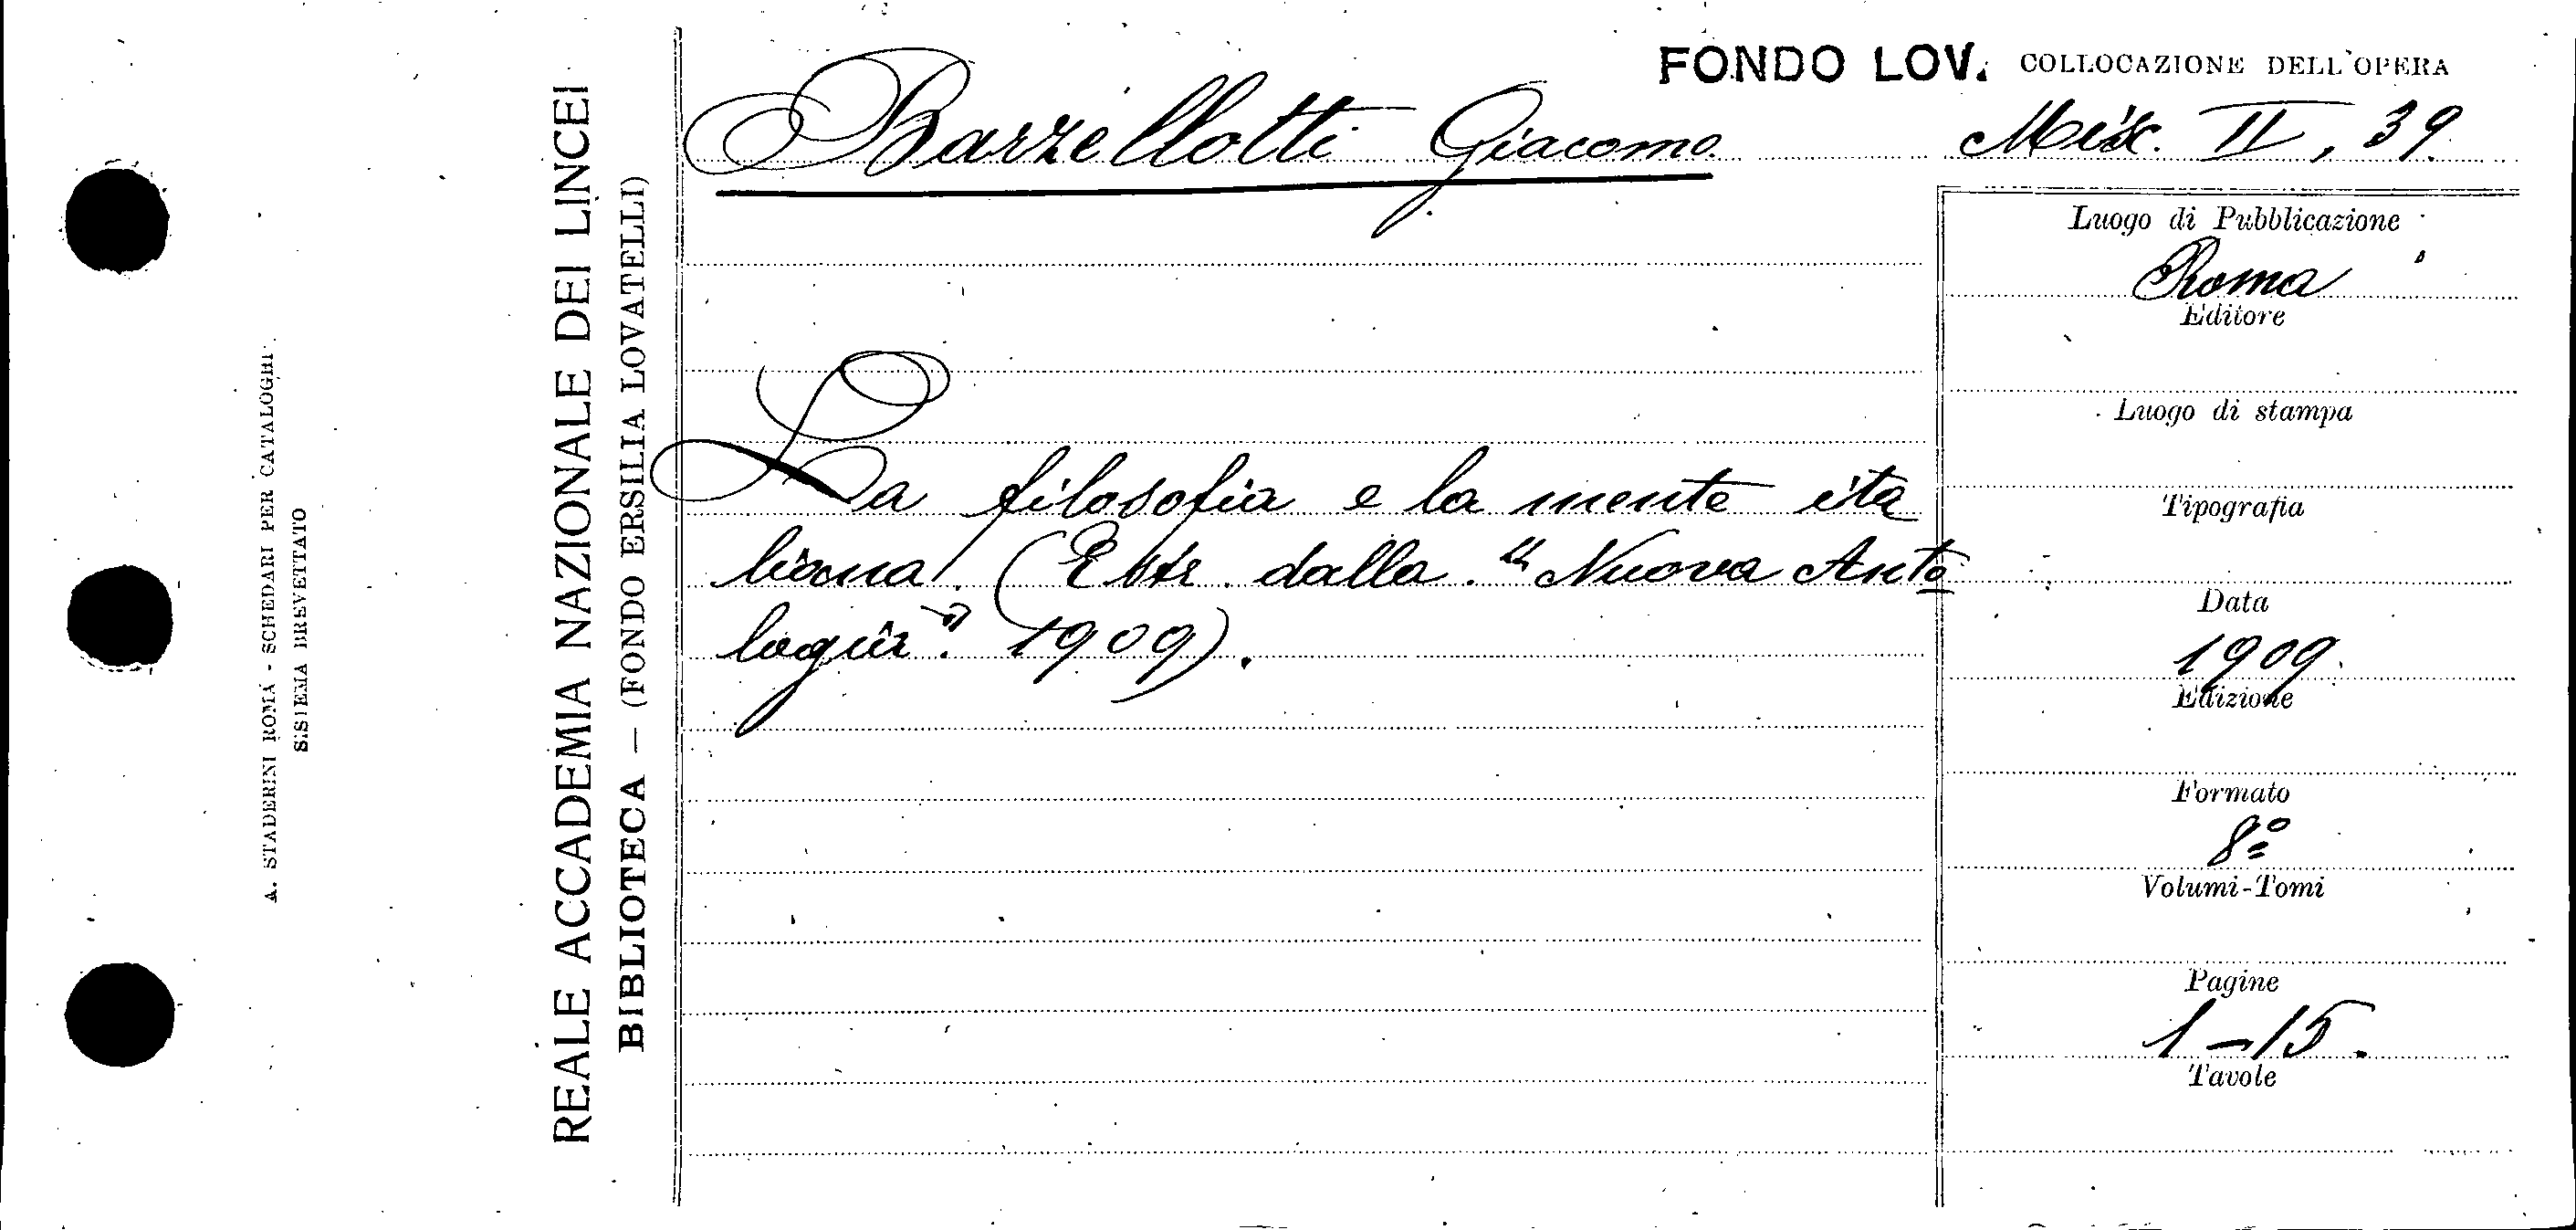 A. STADERINI ROMA - SCHEDARI PER CATALOGHI
SISTEMA BREVETTATO
REALE ACCADEMIA NAZIONALE DEI LINCEI
BIBLIOTECA — (FONDO ERSILIA LOVATELLI)
FONDO LOV. COLLOCAZIONE DELL'OPERA
Barzellotti Giacomo Misc. II, 39.
La filosofia e la mente ita
liana. (Estr. dalla "Nuova Anto
logia". 1909).
Luogo di Pubblicazione
Roma
Editore
Luogo di stampa
Tipografia
Data
1909.
Edizione
Formato
8º
Volumi-Tomi
Pagine
1-15.
Tavole